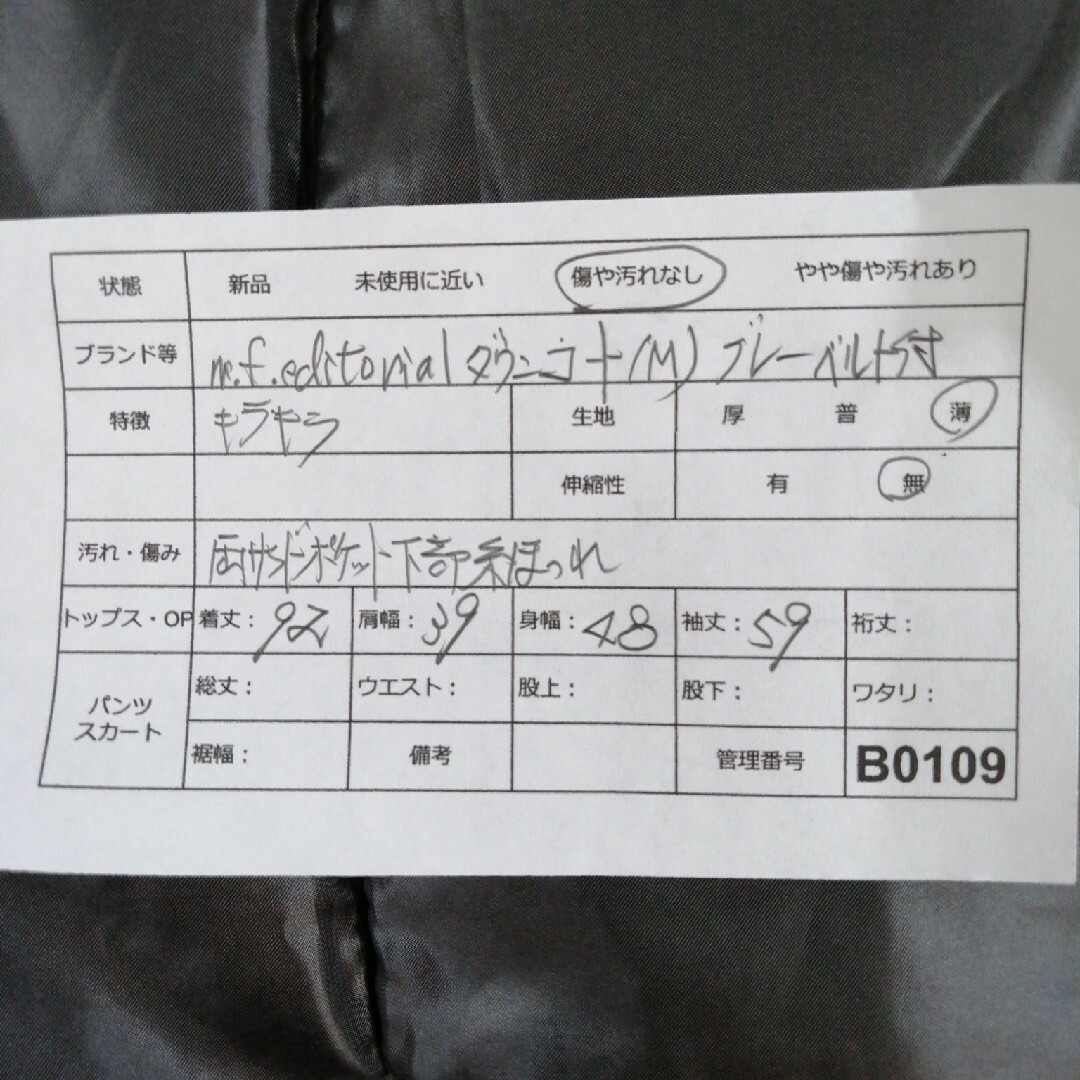 状態 新品 未使用に近い 傷や汚れなし やや傷や汚れあり
ブランド等 m.f.editorial ダウンコート(M) グレーベルト付
特徴 キラキラ 生地 厚 普 薄
伸縮性 有 無
汚れ・傷み 両サイドポケット下部糸ほつれ
トップス・OP 着丈：92 肩幅：39 身幅：48 袖丈：59 裄丈：
パンツ スカート 総丈： ウエスト： 股上： 股下： ワタリ：
裾幅： 備考 管理番号 B0109